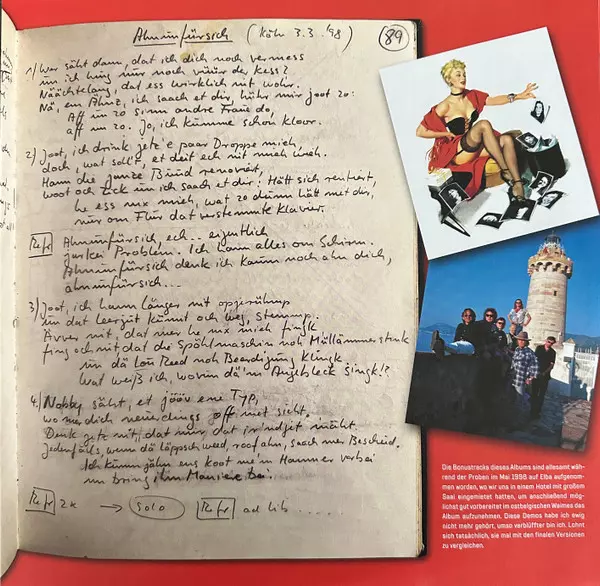 Ahnunfürsich (Köln 3.3.'98) 89
1) Wer säht dann, dat ich dich noch vermess
un ich hing nur noch vüür der Kess?
Näächtelang, dat ess wirklich nit wohr.
Nä, em Ähnz, ich saach et dir, hühr mir joot zo:
Aff un zo sinn andre Fraue do,
aff un zo. Jo, ich kumme schon kloor.
2) Joot, ich drink jetz e paar Droppe mieh,
doch, wat soll't, et deit ech nit mieh wieh.
Hann die janze Bud renoviert,
woot och Zick un ich saach et dir: Hätt sich rentiert,
he ess nix mieh, wat zo dunn hätt met dir,
nur om Flur dat verstemmte Klavier.
Refr Ahnunfürsich, ech... eijentlich
jarkei Problem. Ich hann alles om Schirm.
Ahnunfürsich denk ich kaum noch ahn dich,
ahnunfürsich...
3) Joot, ich hann länger nit opjerühmp
un dat Leerjot künnt och weg, stemmp.
Ävver nit, dat mer he nix mieh fingk
fing och nit, dat die Spöhlmaschin noh Mölltämmer stink
un dä Lou Reed noh Beerdijung klingk.
Wat weiß ich, wovun dä 'm Augebleck singk!?
4) Nobby säht, et jööv ene Typ,
wo mer dich neuerdings off met sieht.
Denk jetz nit, dat mir dat irjndjet mäht
Jedenfalls, wenn dä läppsch weed, roof ahn, saach mer Bescheid.
Ich kümm jähn ens koot met 'm Hammer vorbei
un bring ihm Maniere bei.
Refr 2x → Solo Refr ad lib ...
Die Bonustracks dieses Albums sind allesamt wäh-
rend der Proben im Mai 1998 auf Elba aufgenom-
men worden, wo wir uns in einem Hotel mit großem
Saal eingemietet hatten, um anschließend mög-
lichst gut vorbereitet im ostbelgischen Waimes das
Album aufzunehmen. Diese Demos habe ich ewig
nicht mehr gehört, umso verblüffter bin ich. Lohnt
sich tatsächlich, sie mal mit den finalen Versionen
zu vergleichen.